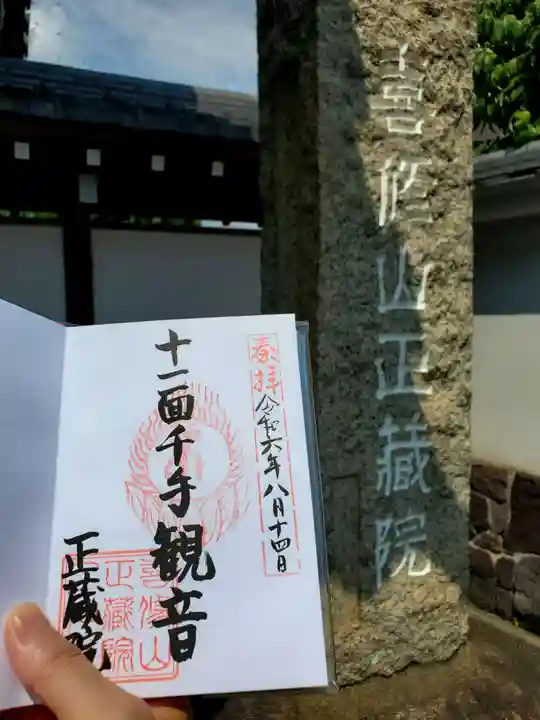 喜修山正藏院
奉拝
令和六年八月十四日
十一面千手観音
正蔵院
喜修山
正藏院